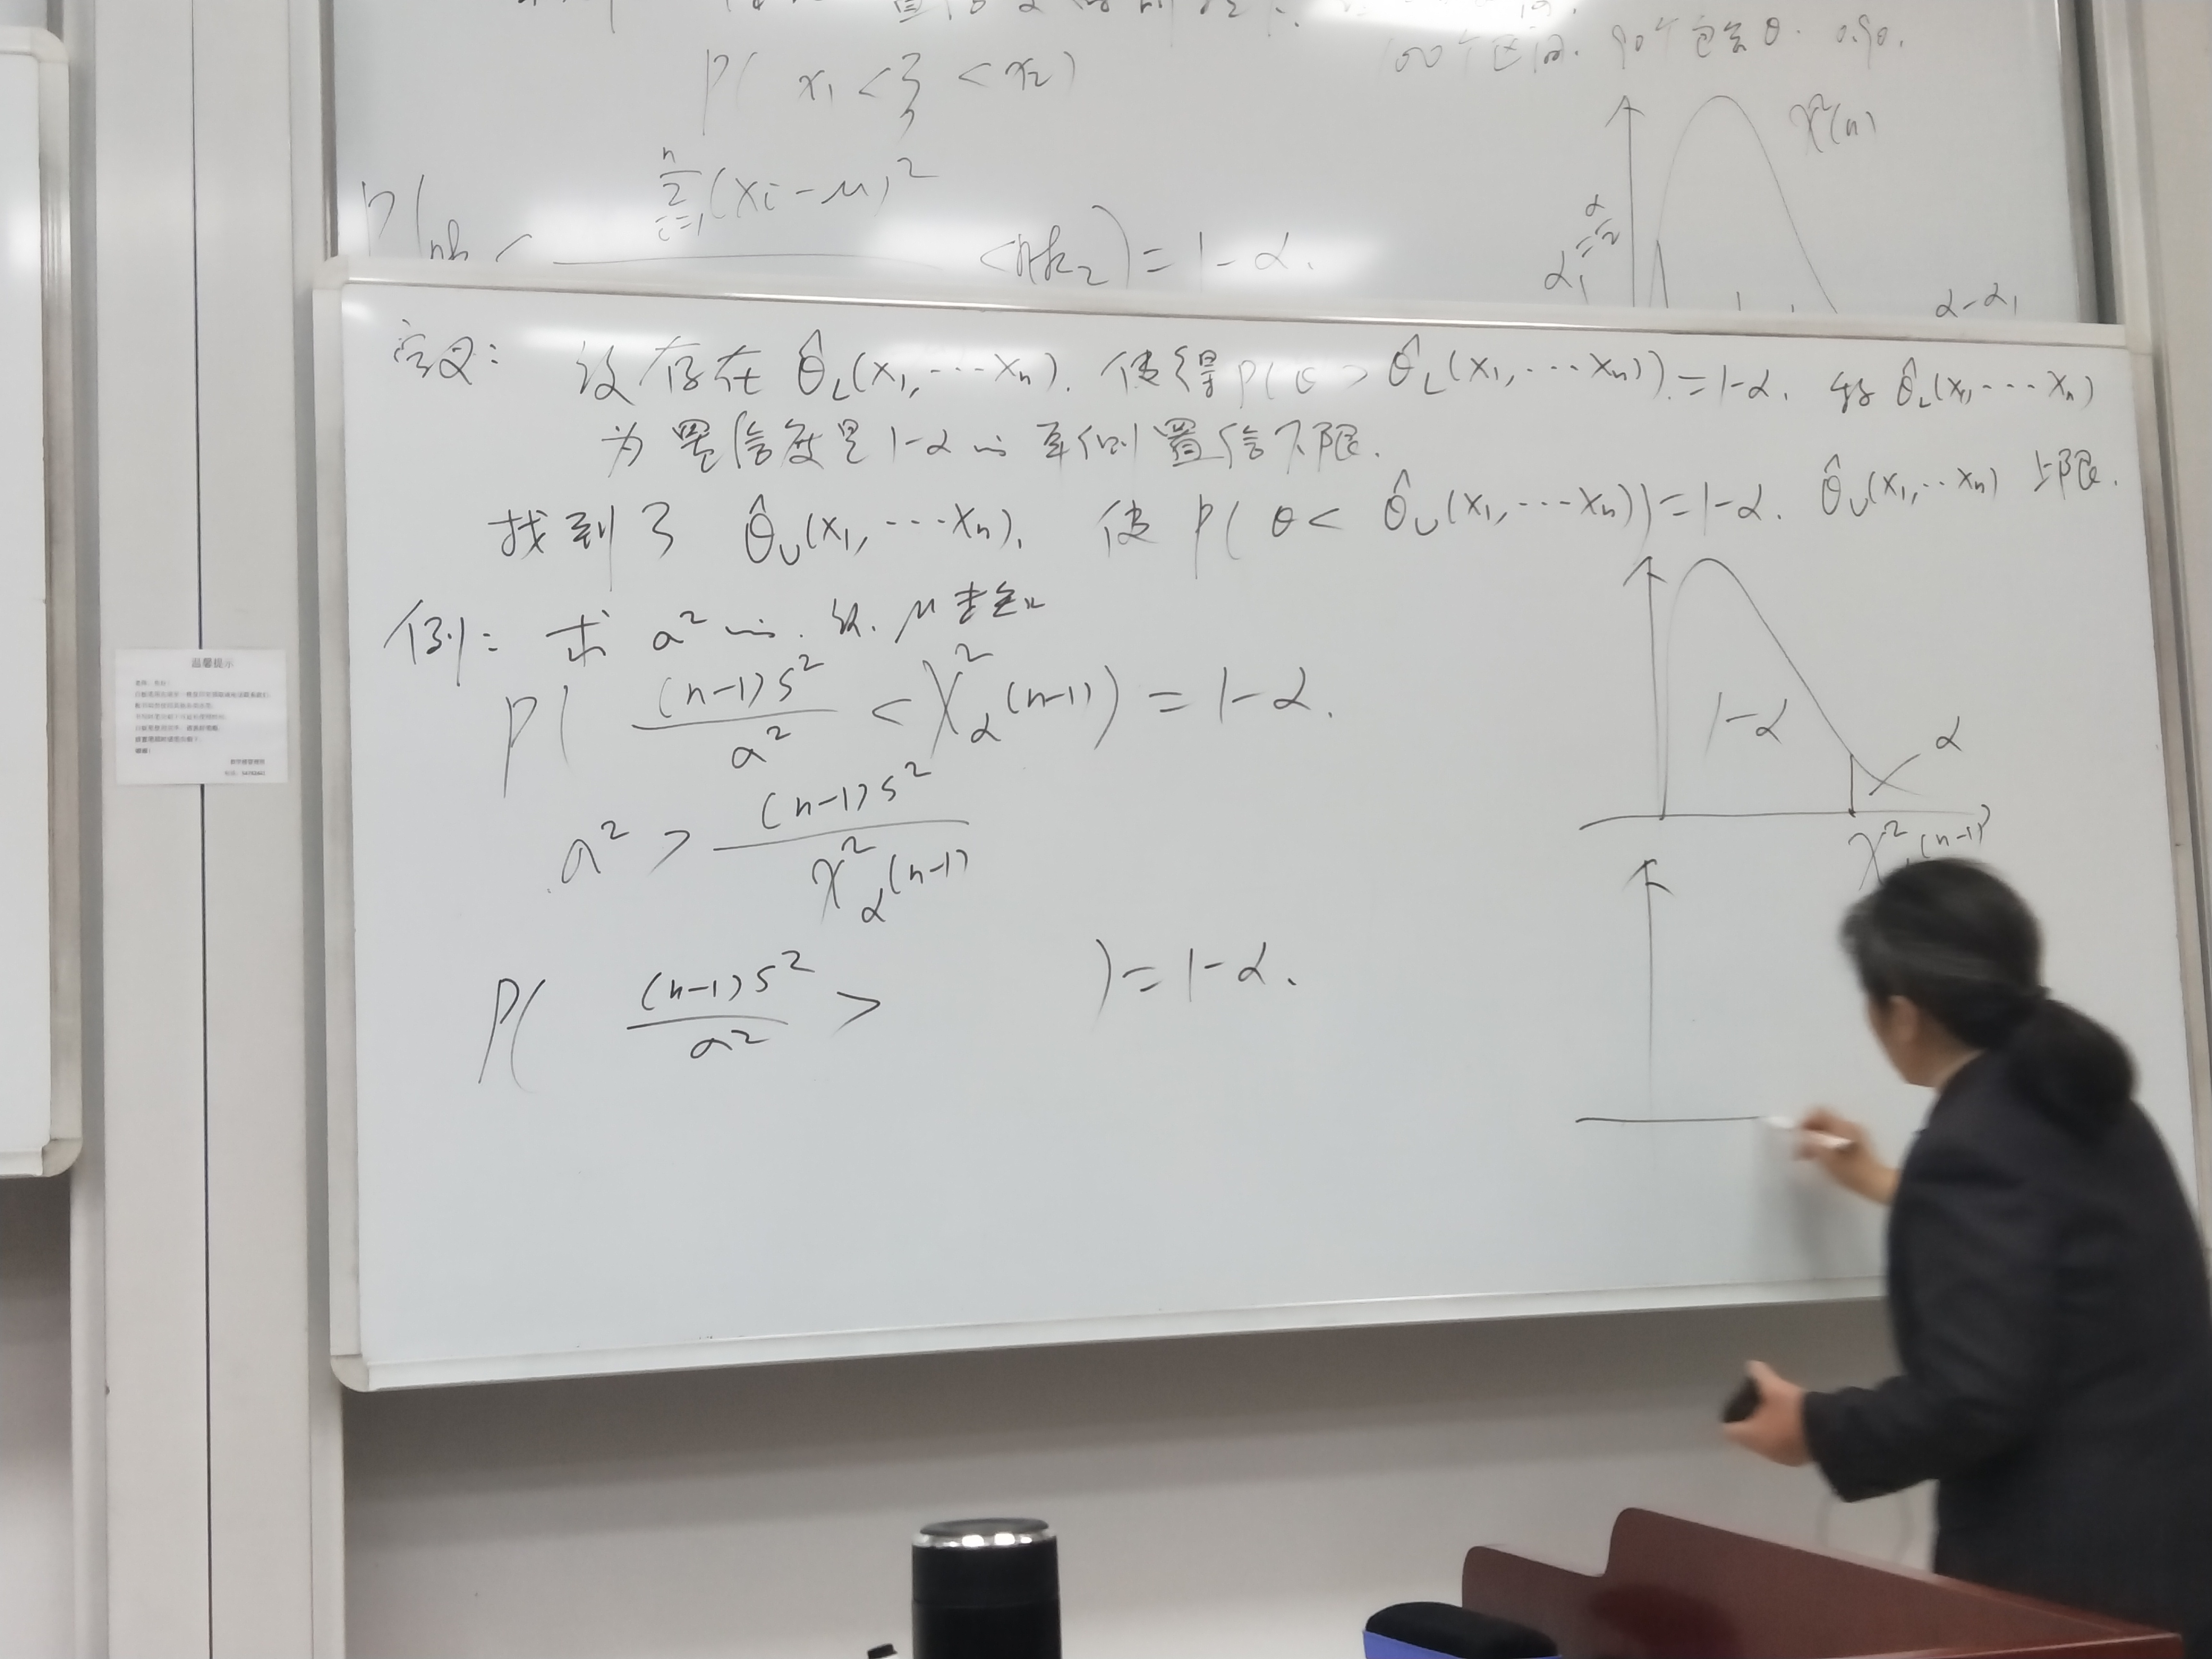 P( x₁ < ξ < x₂)
100个区间. 90个包含θ. 0.90.
χ²(n)
P(nk < Σᵢ₌₁ⁿ(Xi-μ)² < nk₂) = 1-α.
α₁ = α/2
α-α₁
定义: 设存在 θ̂_L(X₁,···Xₙ). 使得P(θ > θ̂_L(X₁,···Xₙ)) = 1-α. 称 θ̂_L(X₁,···Xₙ)
为置信度是1-α的单侧置信下限.
找到了 θ̂_U(X₁,···Xₙ), 使 P(θ < θ̂_U(X₁,···Xₙ)) = 1-α. θ̂_U(X₁,··Xₙ) 上限.
例: 求 a² 的. 设. μ未知
P( (n-1)S²/a² < χ²_α(n-1) ) = 1-α.
1-α
α
χ² (n-1)
a² > (n-1)S²/χ²_α(n-1)
P( (n-1)S²/a² > ) = 1-α.
温馨提示